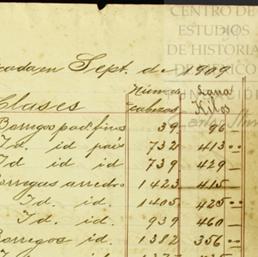 CENTRO DE
ESTUDIOS
DE HISTORIA
DE MÉXICO
Sept. de 1909
Clases Número Lana
cabezas Kilos
Borregos pad. finos 39 96
Id. id país 732 413
Id id id 739 429
Borregas 1423 415
Id. id. 1405 425
Id. id. 939 460
Borregos id. 1382 356